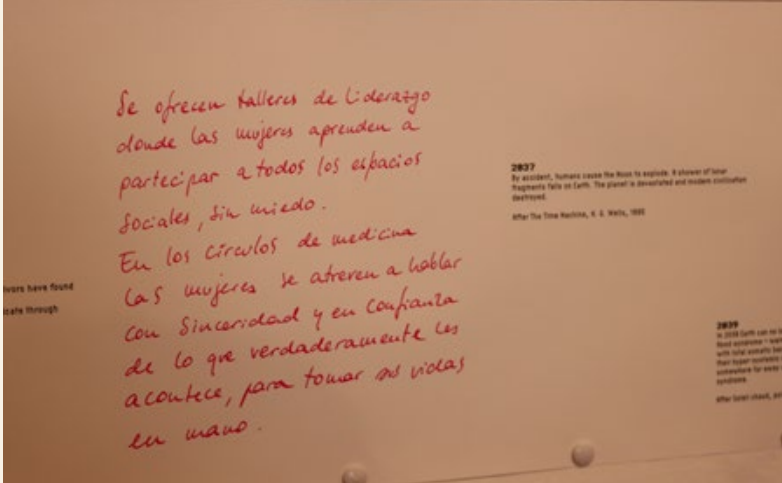 Se ofrecen talleres de Liderazgo
donde las mujeres aprenden a
partecipar a todos los espacios
Sociales, sin miedo.
En los círculos de medicina
las mujeres se atreven a hablar
con Sinceridad y en confianza
de lo que verdaderamente les
acontece, para tomar sus vidas
en mano.
ivors have found
icate through
2037
By accident, humans cause the Moon to explode. A shower of lunar
fragments falls on Earth. The planet is devastated and modern civilization
destroyed.
After The Time Machine, H. G. Wells, 1895
2039
In 2039 Earth can no
with total
their hyper-systems
somewhere far away
syndrome.
After